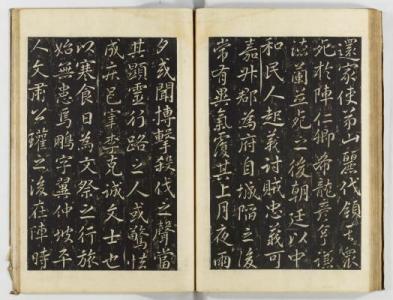 還家使弟山麗代領其眾
死於陣仁卿希龍彥亨讓
德蘭並死之後朝廷以中
和民人起義討賊忠義可
嘉升郡為府自城陷之後
常有異氣覆其上月夜雨
夕或聞搏擊殺伐之聲當
其顯靈行路之人或驚怯
成疾邑書李克誠文士也
以寒食日為文祭之行旅
始無患焉鵬字翼仲坡平
人文肅公瓘之後在陣時